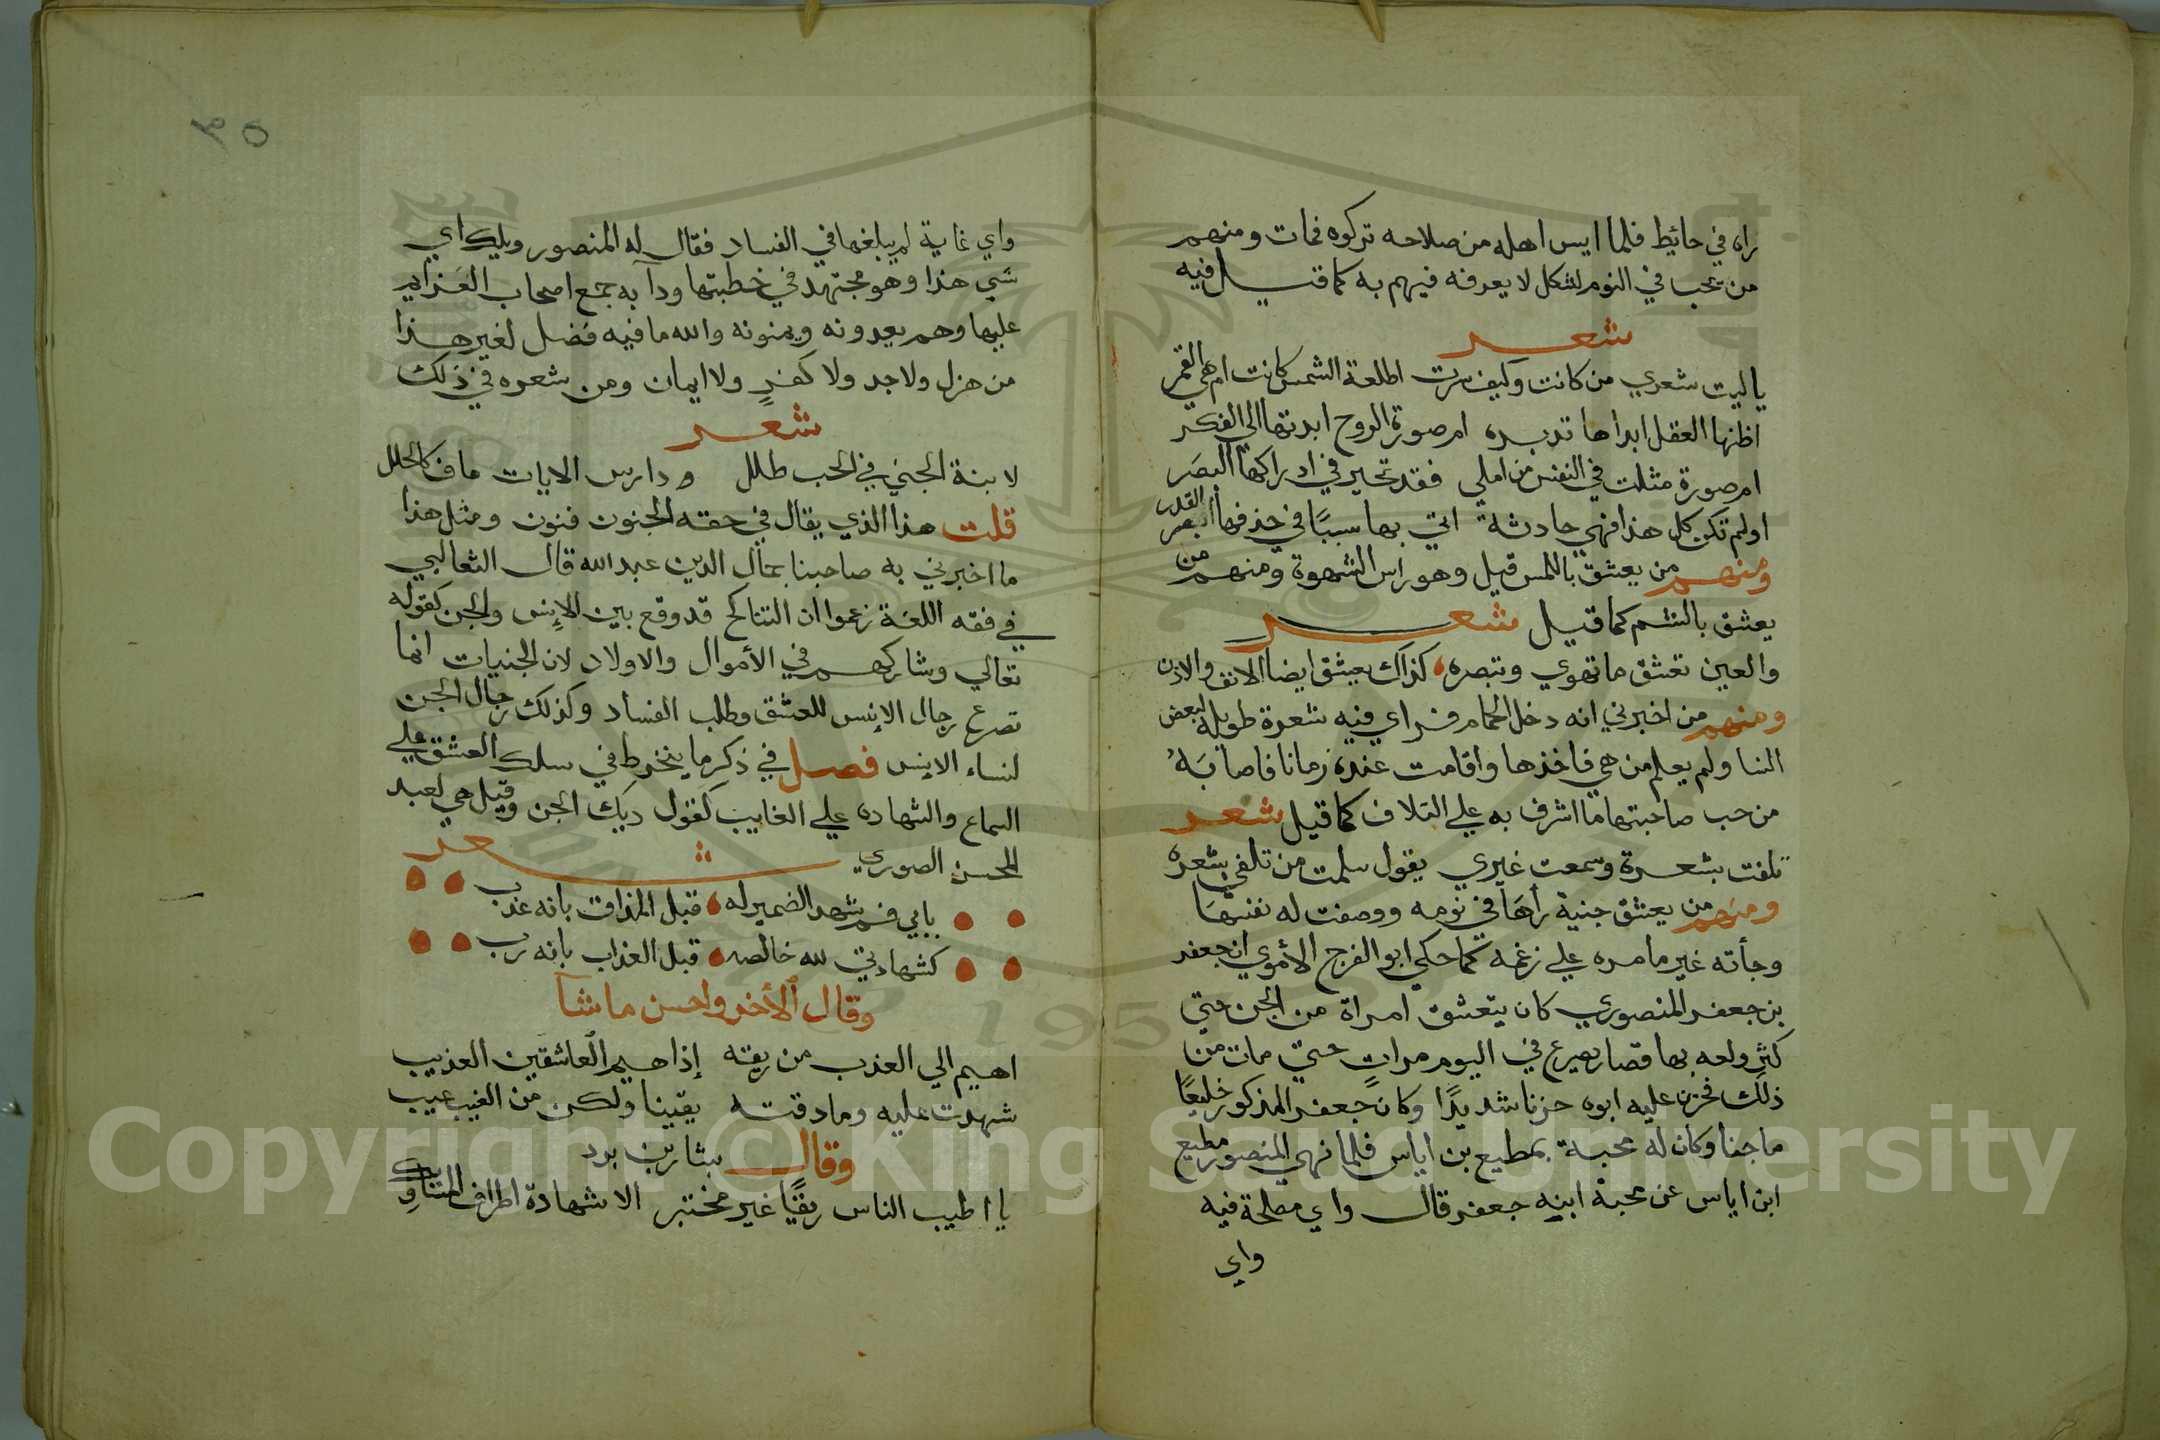 راه في حائيط فلما ايس اهله من صلاحه تركوه فمات ومنهم
من يحب في النوم لشكل لا يعرفه فيهم به كما قيل فيه
شعر
يا ليت شعري من كانت وكيف سرت اطلعة الشمس كانت ام هي القمر
اظنها العقل ابداها تدبره ام صورة الروح ابدتها الي الفكر
ام صورة مثلت في النفس من املي فقد تحير في ادراكها البصر
او لم تكن كل هذا فهي حادثة اتي بها سببًا في حذفها القدر
ومنهم من يعشق باللمس قيل وهو راس الشهوة ومنهم من
يعشق بالشم كما قيل شعر
والعين تعشق ما تهوي وتبصره كذاك يعشق ايضا الانف والاذن
ومنهم من اخبرني انه دخل الحمام فراي فيه شعرة طويلة لبعض
النسا ولم يعلم من هي فاخذها واقامت عنده زمانا فاصابَهُ
من حب صاحبتها ما اشرف به علي التلاف كما قيل شعر
تلفت بشعرة وسمعت غيري يقول سلمت من تلفي بشعره
ومنهم من يعشق جنية رأها في نومه ووصفت له نفسها
وجأته غير ما مره علي زعمه كما حكي ابو الفرج الأموي ان جعفر
بن جعفر المنصوري كان يتعشق امراة من الجن حتي
كثر ولعه بها فصار يصرع في اليوم مرات حتي مات من
ذلك فحزن عليه ابوه حزنا شديدًا وكان جعفر المذكور خليعًا
ماجنا وكان له محبة بمطيع بن اياس فلما نهي المنصور مطيع
ابن اياس عن محبة ابنه جعفر قال واي مصلحة فيه
واي
٣٥
واي غاية لم يبلغها في الفساد فقال له المنصور ويلك اي
شي هذا وهو مجتهد في خطبتها ودآبه جمع اصحاب العزايم
عليها وهم يعدونه ويمنونه والله ما فيه فضل لغير هذا
من هزل ولا جد ولا كفر ولا ايمان ومن شعره في ذلك
شعر
لابنة الجني في الحب طلل ودارس الايات عاف كالحلل
قلت هذا الذي يقال في حقه الجنون فنون ومثل هذا
ما اخبرني به صاحبنا جمال الدين عبد الله قال الثعالبي
في فقه اللغة زعموا ان التناكح قد وقع بين الإنس والجن كقوله
تعالي وشاركهم في الأموال والاولاد لان الجنيات انما
تصرع رجال الإنس للعشق وطلب الفساد وكذلك رجال الجن
لنساء الانس فصل في ذكر ما ينخرط في سلك العشق علي
السماع والشهاده علي الغايب كقول ديك الجن وقيل هي لعبد
المحسن الصوري شعر
بابي فم شهد الضمير له قبل المذاق بانه عذب
كشهادتي لله خالصه قبل العذاب بانه رب
وقال ألأخر واحسن ما شآ
اهيم الي العذب من ريقه إذا هيم العاشقين العذيب
شهدت عليه وما دقته يقينا ولكن من الغيب عيب
وقال بشار بن برد
يا اطيب الناس ريقًا غير مختبر الا شهادة اطراف المساويك